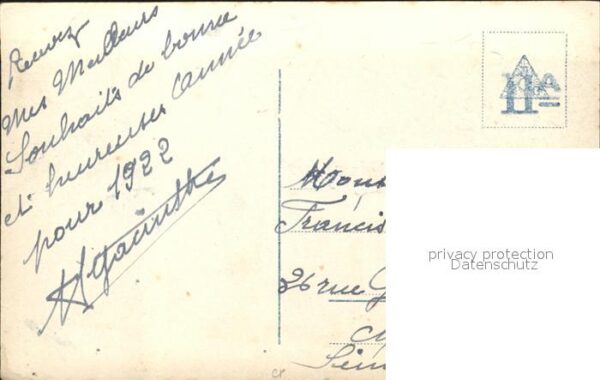 Recevez
Mes Meilleurs
Souhaits de bonne
et heureuses année
pour 1922
Hyacinthe
Mons
Francis
26 rue G
Sein
privacy protection
Datenschutz